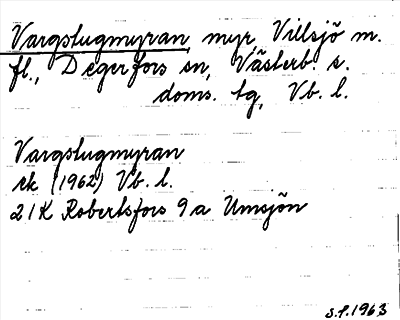 Vargstugmyran, myr, Villsjö m.
fl., Degerfors sn, Västerb. s.
doms. tg, Vb. l.
Vargstugmyran
rk (1962) Vb. l.
21K Robertsfors 9a Umsjön
S.F. 1963